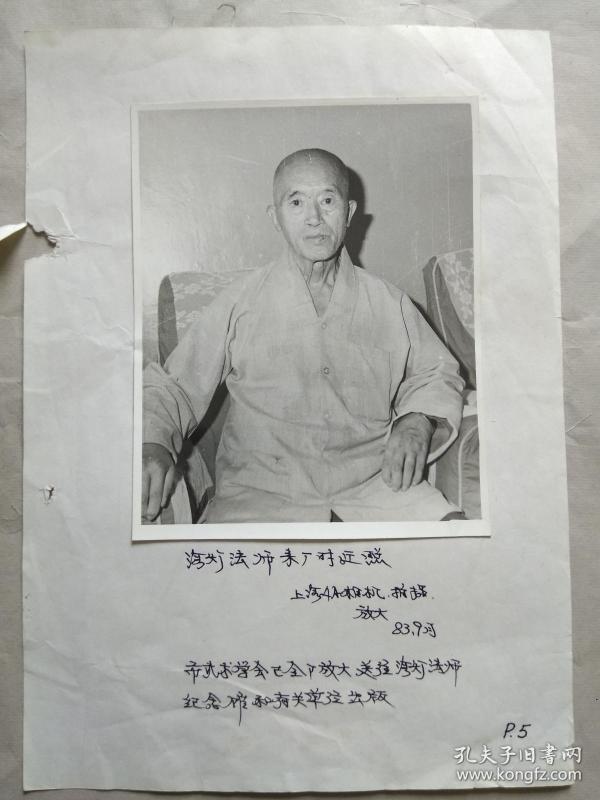 海灯法师来厂时近照
上海4A相机.拍摄.
放大
83.9月
市武术学会已全部放大送往海灯法师
纪念馆和有关单位出版
P.5
孔夫子旧书网
www.kongfz.com